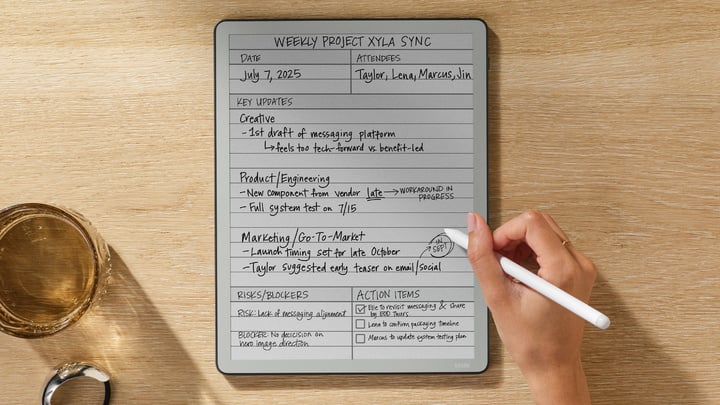 WEEKLY PROJECT XYLA SYNC
DATE
ATTENDEES
July 7, 2025
Taylor, Lena, Marcus, Jin
KEY UPDATES
Creative
- 1st draft of messaging platform
↳ feels too tech-forward vs benefit-led
Product/Engineering
- New component from vendor late → WORKAROUND IN
PROGRESS
- Full system test on 7/15
Marketing/Go-To-Market
- Launch timing set for late October
IN
SEPT
- Taylor suggested early teaser on email/social
RISKS/BLOCKERS
RISK: Lack of messaging alignment
BLOCKER: No decision on
hero image direction
ACTION ITEMS
Elle to revisit messaging & share
by EOD Thurs.
Lena to confirm packaging timeline
Marcus to update system testing plan